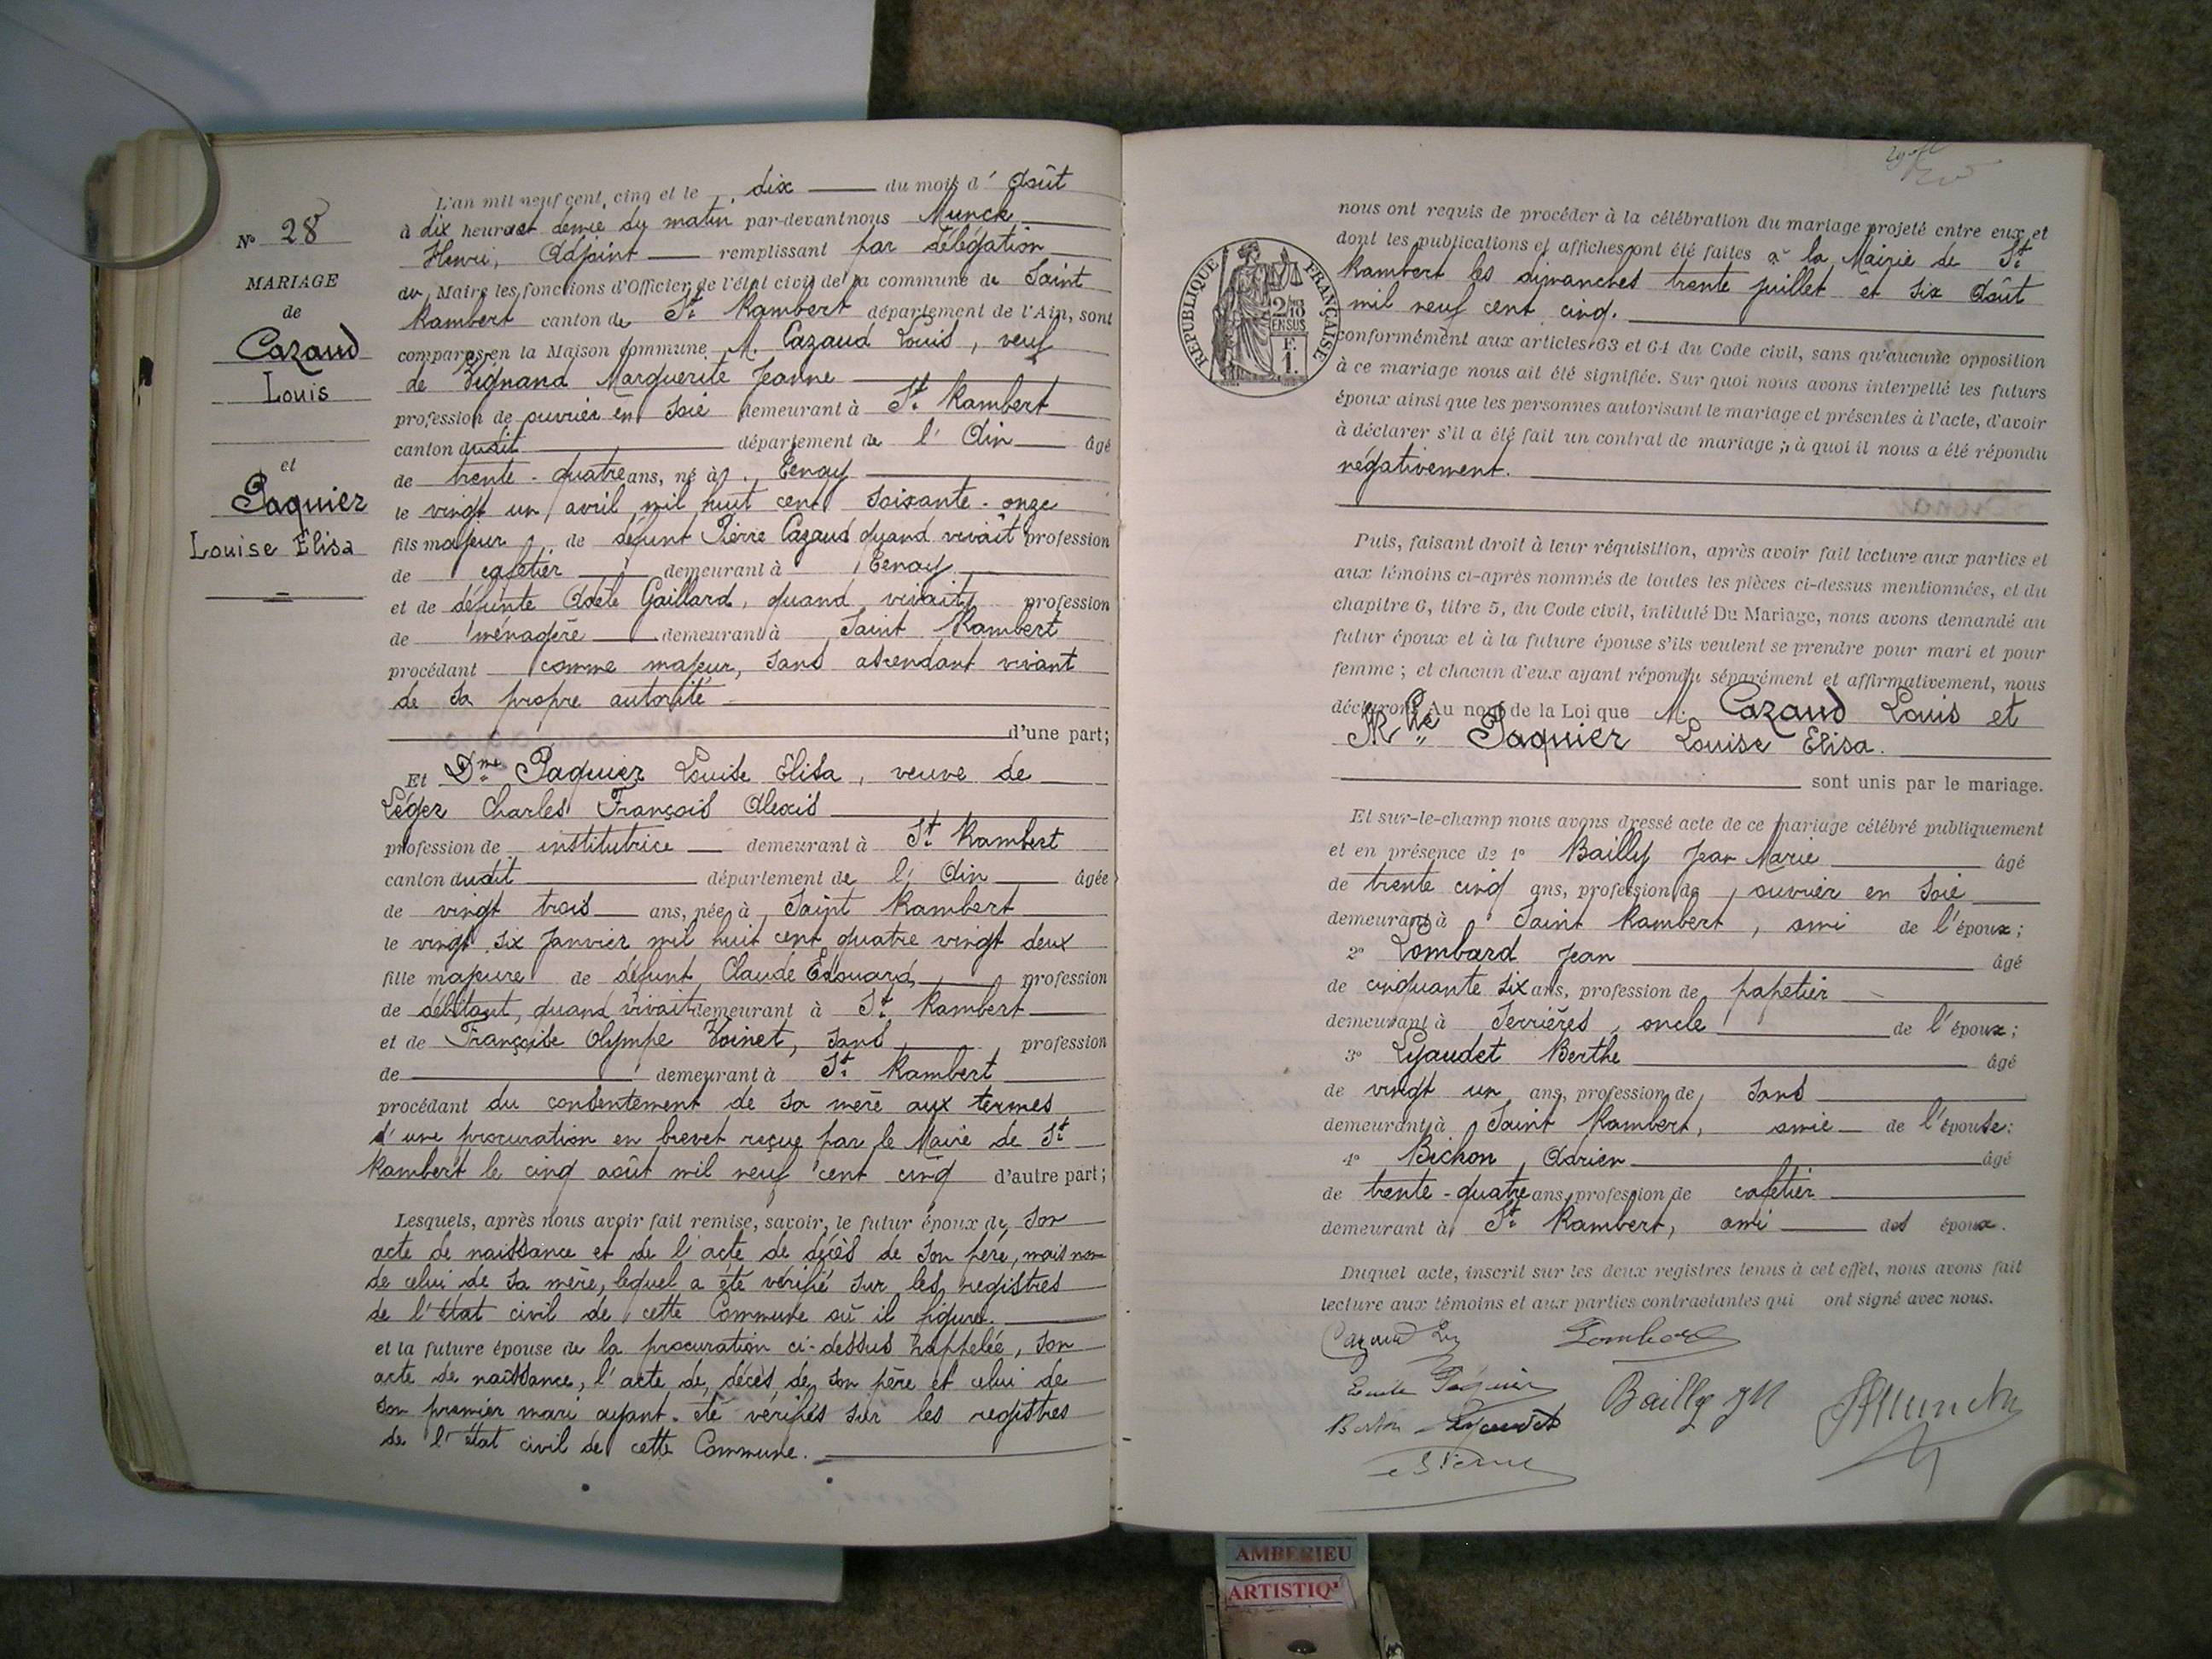 N° 28
MARIAGE
de
Cazaud
Louis
et
Paquier
Louise Elisa
L'an mil neuf cent cinq et le dix du mois d'Août
à dix heures et demie du matin par-devant nous Munck
Henri, Adjoint remplissant par délégation
du Maire les fonctions d'Officier de l'état civil de la commune de Saint
Rambert canton de St Rambert département de l'Ain, sont
comparus en la Maison commune M. Cazaud Louis, veuf
de Vignand Marguerite Jeanne
profession de ouvrier en soie demeurant à St Rambert
canton dudit département de l'Ain âgé
de trente-quatre ans, né à Tenay
le vingt un avril mil huit cent soixante-onze
fils majeur de défunt Pierre Cazaud quand vivait profession
de cafetier demeurant à Tenay
et de défunte Adèle Gaillard, quand vivait profession
de ménagère demeurant à Saint Rambert
procédant comme majeur, sans ascendant vivant
de sa propre autorité
d'une part;
Et Dme Paquier Louise Elisa, veuve de
Léger Charles François Alexis
profession de institutrice demeurant à St Rambert
canton dudit département de l'Ain âgée
de vingt trois ans, née à Saint Rambert
le vingt six Janvier mil huit cent quatre vingt deux
fille majeure de défunt Claude Edouard profession
de débitant, quand vivait demeurant à St Rambert
et de Françoise Olympe Voinet, sans profession
de demeurant à St Rambert
procédant du consentement de sa mère aux termes
d'une procuration en brevet reçue par le Maire de St
Rambert le cinq août mil neuf cent cinq d'autre part;
Lesquels, après nous avoir fait remise, savoir, le futur époux de son
acte de naissance et de l'acte de décès de son père, mais non
de celui de sa mère, lequel a été vérifié sur les registres
de l'état civil de cette Commune où il figure.
et la future épouse de la procuration ci-dessus rappelée, son
acte de naissance, l'acte de décès de son père et celui de
son premier mari ayant été vérifiés sur les registres
de l'état civil de cette Commune.
RÉPUBLIQUE FRANÇAISE
2/10 EN SUS
F. 1.
nous ont requis de procéder à la célébration du mariage projeté entre eux et
dont les publications et affiches ont été faites à la Mairie de St
Rambert les dimanches trente juillet et six Août
mil neuf cent cinq.
conformément aux articles 63 et 64 du Code civil, sans qu'aucune opposition
à ce mariage nous ait été signifiée. Sur quoi nous avons interpellé les futurs
époux ainsi que les personnes autorisant le mariage et présentes à l'acte, d'avoir
à déclarer s'il a été fait un contrat de mariage; à quoi il nous a été répondu
négativement.
Puis, faisant droit à leur réquisition, après avoir fait lecture aux parties et
aux témoins ci-après nommés de toutes les pièces ci-dessus mentionnées, et du
chapitre 6, titre 5, du Code civil, intitulé Du Mariage, nous avons demandé au
futur époux et à la future épouse s'ils veulent se prendre pour mari et pour
femme; et chacun d'eux ayant répondu séparément et affirmativement, nous
déclarons Au nom de la Loi que M. Cazaud Louis et
Mlle Paquier Louise Elisa.
sont unis par le mariage.
Et sur-le-champ nous avons dressé acte de ce mariage célébré publiquement
et en présence de 1° Bailly Jean Marie âgé
de trente cinq ans, profession de ouvrier en soie
demeurant à Saint Rambert, ami de l'époux;
2° Lombard Jean âgé
de cinquante six ans, profession de papetier
demeurant à Serrières, oncle de l'époux;
3° Lyaudet Berthe âgé
de vingt un ans, profession de sans
demeurant à Saint Rambert, amie de l'épouse;
4° Bichon Adrien âgé
de trente-quatre ans, profession de cafetier
demeurant à St Rambert, ami des époux.
Duquel acte, inscrit sur les deux registres tenus à cet effet, nous avons fait
lecture aux témoins et aux parties contractantes qui ont signé avec nous.
Cazaud Lombard
Paquier Bailly JM HMunck
Lyaudet
AMBERIEU
ARTISTIQ'